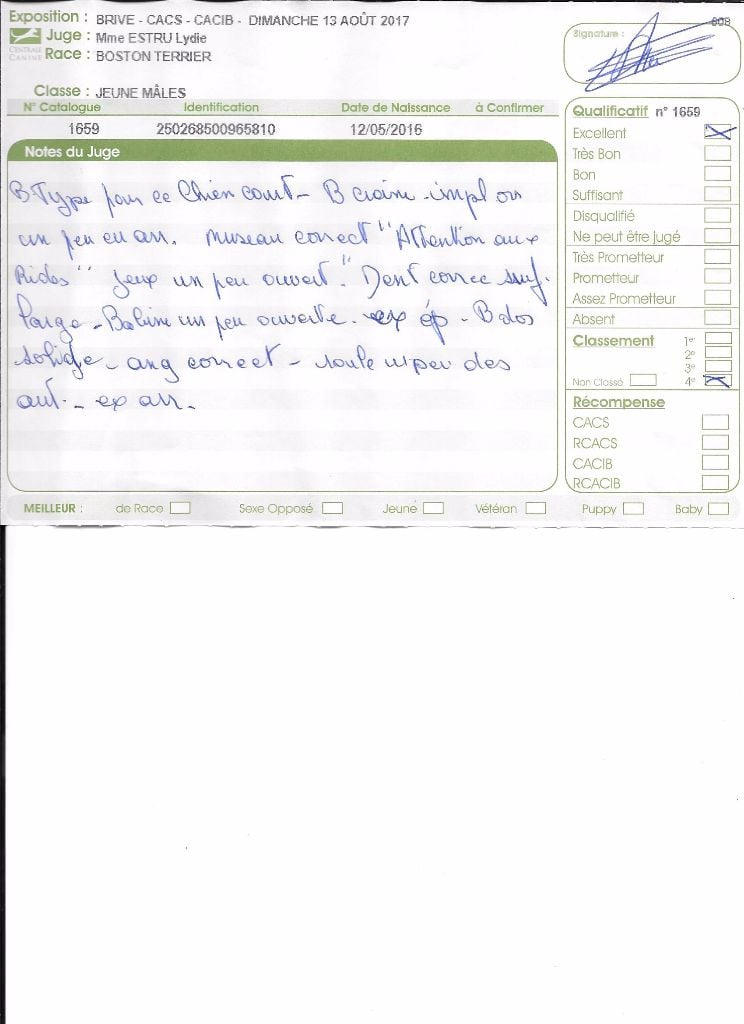 Exposition : BRIVE - CACS - CACIB - DIMANCHE 13 AOÛT 2017
CENTRALE CANINE
Juge : Mme ESTRU Lydie
Race : BOSTON TERRIER
Classe : JEUNE MÂLES
608
Signature :
N° Catalogue Identification Date de Naissance à Confirmer
1659 250268500965810 12/05/2016
Notes du Juge
B. Type pour ce Chien court - B crane - impl or
un peu en arr. museau correct "Attention aux
Rides" yeux un peu ouvert." Dent correc suf.
large - Babine un peu ouverte - ex ép - B dos
solide - ang correct - roule un peu des
ant - ex arr.
Qualificatif n° 1659
Excellent
Très Bon
Bon
Suffisant
Disqualifié
Ne peut être jugé
Très Prometteur
Prometteur
Assez Prometteur
Absent
Classement 1er
2e
3e
Non Classé 4e
Récompense
CACS
RCACS
CACIB
RCACIB
MEILLEUR : de Race Sexe Opposé Jeune Vétéran Puppy Baby